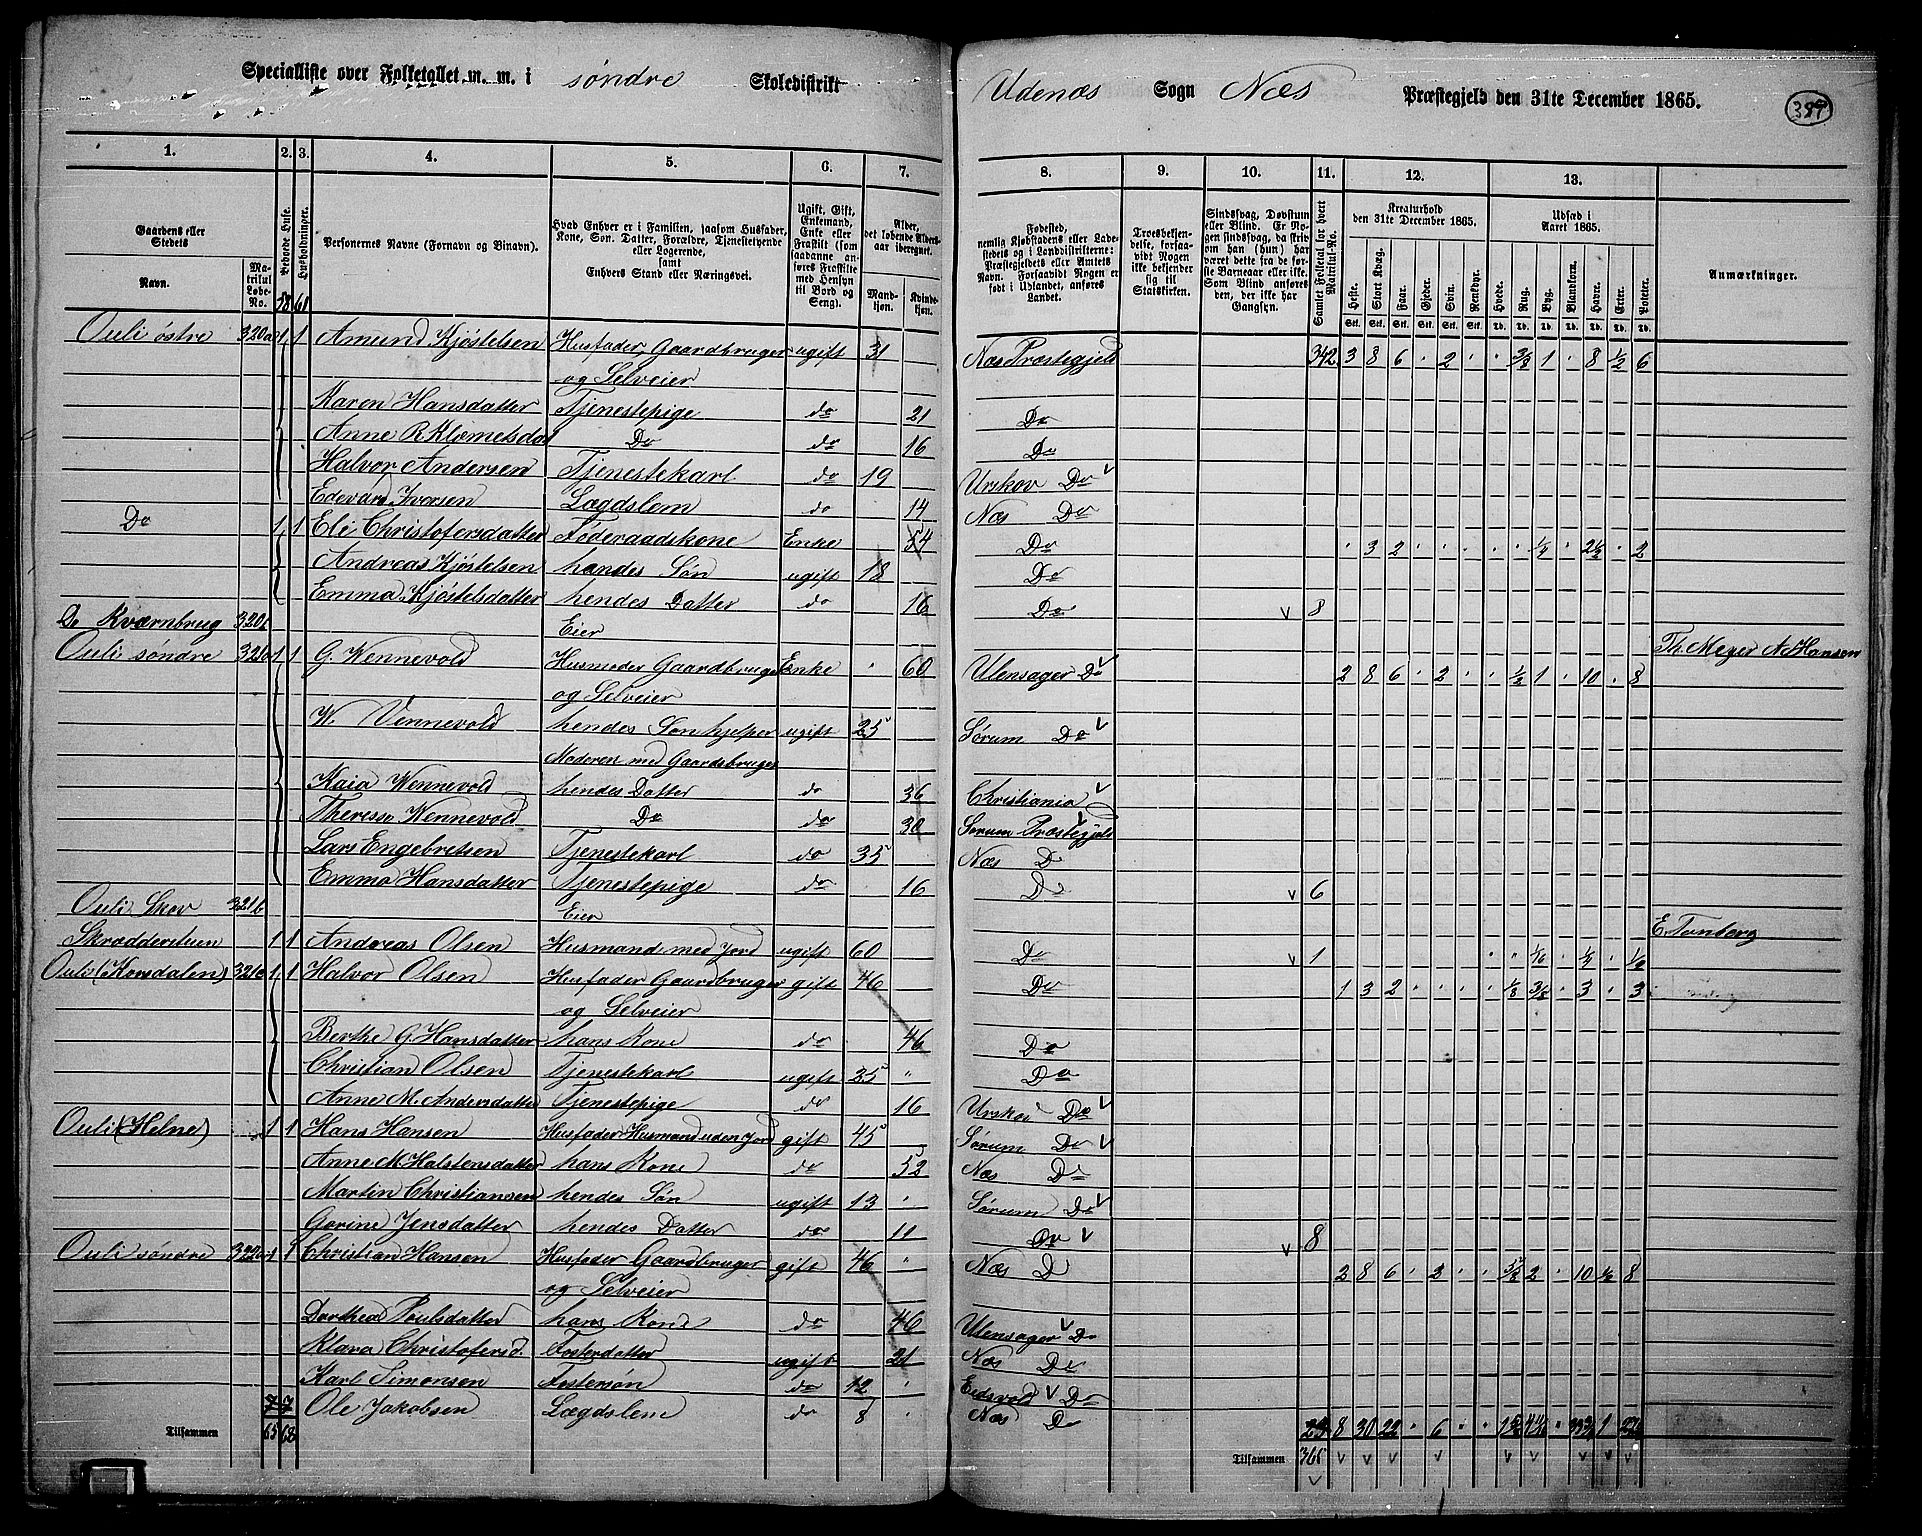 Specialliste over Folketallet m. m. i søndre Skoledistrikt Udenæs Sogn Næs Præstegjeld den 31te December 1865.
1. 2. 3. 4. 5. 6. 7. 8. 9. 10. 11. 12. 13.
Gaardens eller Stedets
Navn.
Matrikul Løbe-No.
Bebodde Huse.
Husholdninger.
Personernes Navne (Fornavn og Binavn).
Hvad Enhver er i Familien, saasom Husfader, Kone, Søn, Datter, Forældre, Tjenestetyende eller Logerende, samt Enhvers Stand eller Næringsvei.
Ugift, Gift, Enkemand, Enke eller Fraskilt (som saadanne anføres Fraskilte med Hensyn til Bord og Seng).
Alder, det løbende Alders-aar iberegnet.
Mandkjøn. Kvindekjøn.
Fødested, nemlig Kjøbstadens eller Ladestedets og i Landdistrikterne: Præstegjeldets eller Amtets Navn. Forsaavidt Nogen er født i Udlandet, anføres Landet.
Troesbekjendelse, forsaavidt Nogen ikke bekjender sig til Statskirken.
Sindssvag, Døvstum eller Blind. Er Nogen sindssvag, da skrives om han (hun) har været dette fra de første Barneaar eller ikke. Som Blind anføres den, der ikke har Gangsyn.
Samlet Folketal for hvert Matrikul-No.
Kreaturhold den 31te December 1865.
Heste. Stort Kvæg. Faar. Gjeder. Svin. Rensdyr.
Udsæd i Aaret 1865.
Hvede. Rug. Byg. Blandkorn. Havre. Erter. Poteter.
Anmærkninger.
58 61
Ouli østre 320a 1 1 Amund Kjøstelsen Husfader, Gaardbruger ugift 31 Næs Præstegjeld 342 3 8 6 2 2/8 1 8 1/2 6
og Selveier
Karen Hansdatter Tjenestepige do 21 Do
Anne R. Klometsdat Do do 16 Do
Halvor Andersen Tjenestekarl do 19 Urskov Do
Edevard Iversen Lægdslem do 14 Næs Do
Do 1 1 Eli Christofersdatter Føderaadskone Enke 54 Do 3 2 1/2 2 1/2 2
Andreas Kjøstelsen hendes Søn ugift 18 Do
Emma Kjøstelsdatter hendes Datter do 16 Do 8
Do Kværnbrug 320 Eier Th. Meyer N. Hansen
Ouli søndre 321a 1 1 G. Wennevold Husmoder Gaardbruger Enke 60 Ulensager Do 2 8 6 2 1/2 1 10 8
og Selveier
W. Vennevold hendes Søn hjelper ugift 25 Sørum Do
Moderen med Gaardsbruget
Kaia Wennevold hendes Datter do 36 Christiania
Therese Wennevold Do do 30 Sørum Præstegjeld
Lars Engebretsen Tjenestekarl do 35 Næs D
Emma Hansdatter Tjenestepige do 16 Do 6
Ouli Skov 321b Eier E. Tønberg
Skrædderstuen 1 1 Andreas Olsen Husmand med Jord ugift 60 Do 1 1/16 1/4 1/2
Ouli (Korsdalen) 321c 1 1 Halvor Olsen Husfader Gaardbruger gift 46 Do 1 3 2 1/8 3/8 3 3
og Selveier
Berthe G. Hansdatter hans Kone do 46 Do
Christian Olsen Tjenestekarl ugift 25 Do
Anne M. Andersdatter Tjenestepige do 16 Urskov Do
Ouli (Helne) 1 1 Hans Hansen Husfader Husmand uden Jord gift 45 Sørum Do
Anne M. Halstensdatter hans Kone do 52 Næs Do
Martin Christiansen hendes Søn ugift 13 Sørum Do
Gorine Jensdatter hendes Datter do 11 Do 8
Ouli søndre 322a 1 1 Christian Hansen Husfader Gaardbruger gift 46 Næs D 2 8 6 2 2 10 8
og Selveier
Dorthea Poulsdatter hans Kone do 46 Ulensager Do
Klara Christofersd. Fosterdatter ugift 21 Næs Do
Karl Simonsen Fostersøn do 12 Eidsvold Do
7 7 Ole Jakobsen Lægdslem do 8 Næs D 8 30 22 6 1
Tilsammen 65 68 Tilsammen 365